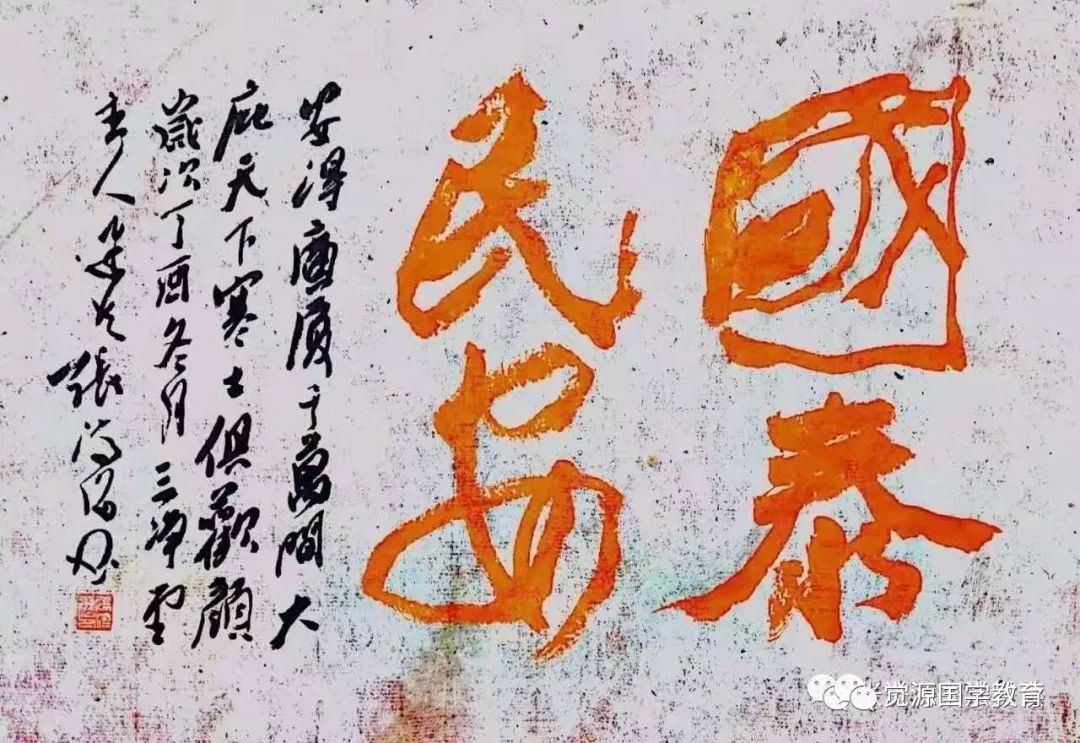 國泰
民安
安得廣厦千萬間大
庇天下寒士俱歡顔
歲次丁酉冬月三净堂
主人張
觉源国学教育